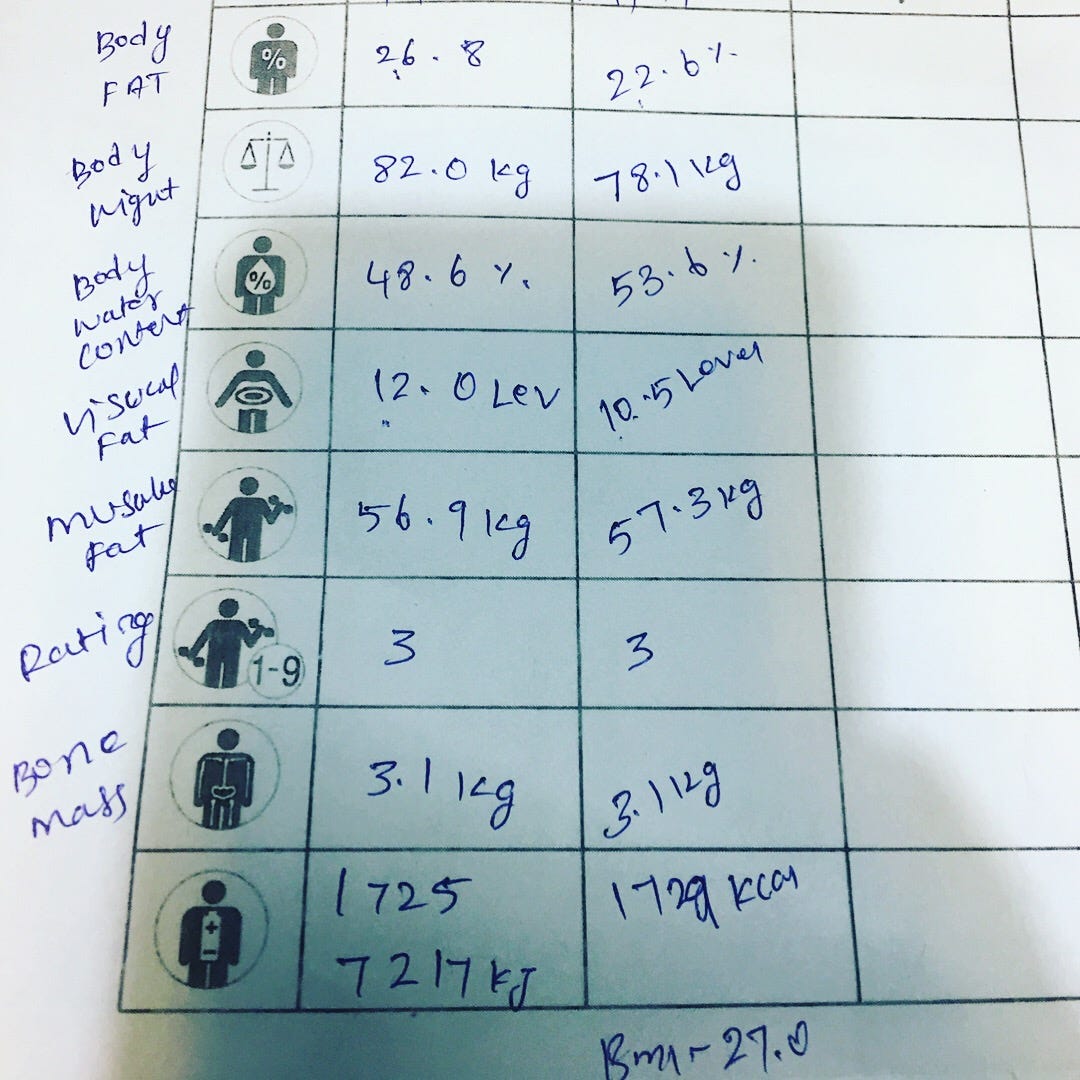 Body
FAT
%
26.8
22.6%
Body
82.0 kg
78.1 kg
Body
water
content
%
48.6 %.
53.6 %.
Fat
12.0 Lev
10.5 Level
Fat
56.9 kg
57.3 kg
Rating
1-9
3
3
Bone
mass
3.1 kg
3.1 kg
+
-
1725
7217 KJ
1729 kcal
BMI - 27.0